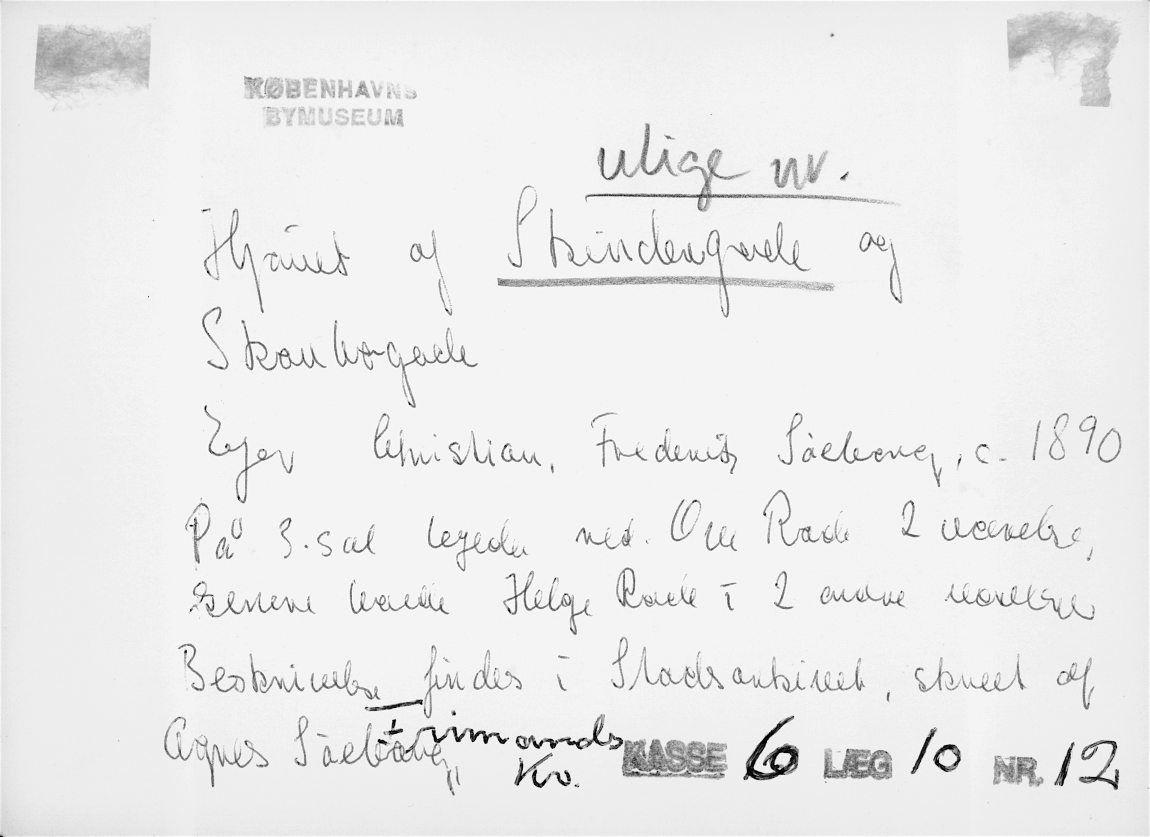 KØBENHAVNS
BYMUSEUM
ulige nr.
Hjørnet af Skindergade og
Skoubogade
Ejer Christian, Frederik, c. 1890
På 3. sal ved. Ove Rode 2 værelse,
senere havde Helge Rode i 2 andre værelser
Beskrivelse findes i Stadsarkivet, skrevet af
Agnes
Frimands
Kv.
KASSE 6 LÆG 10 NR. 12